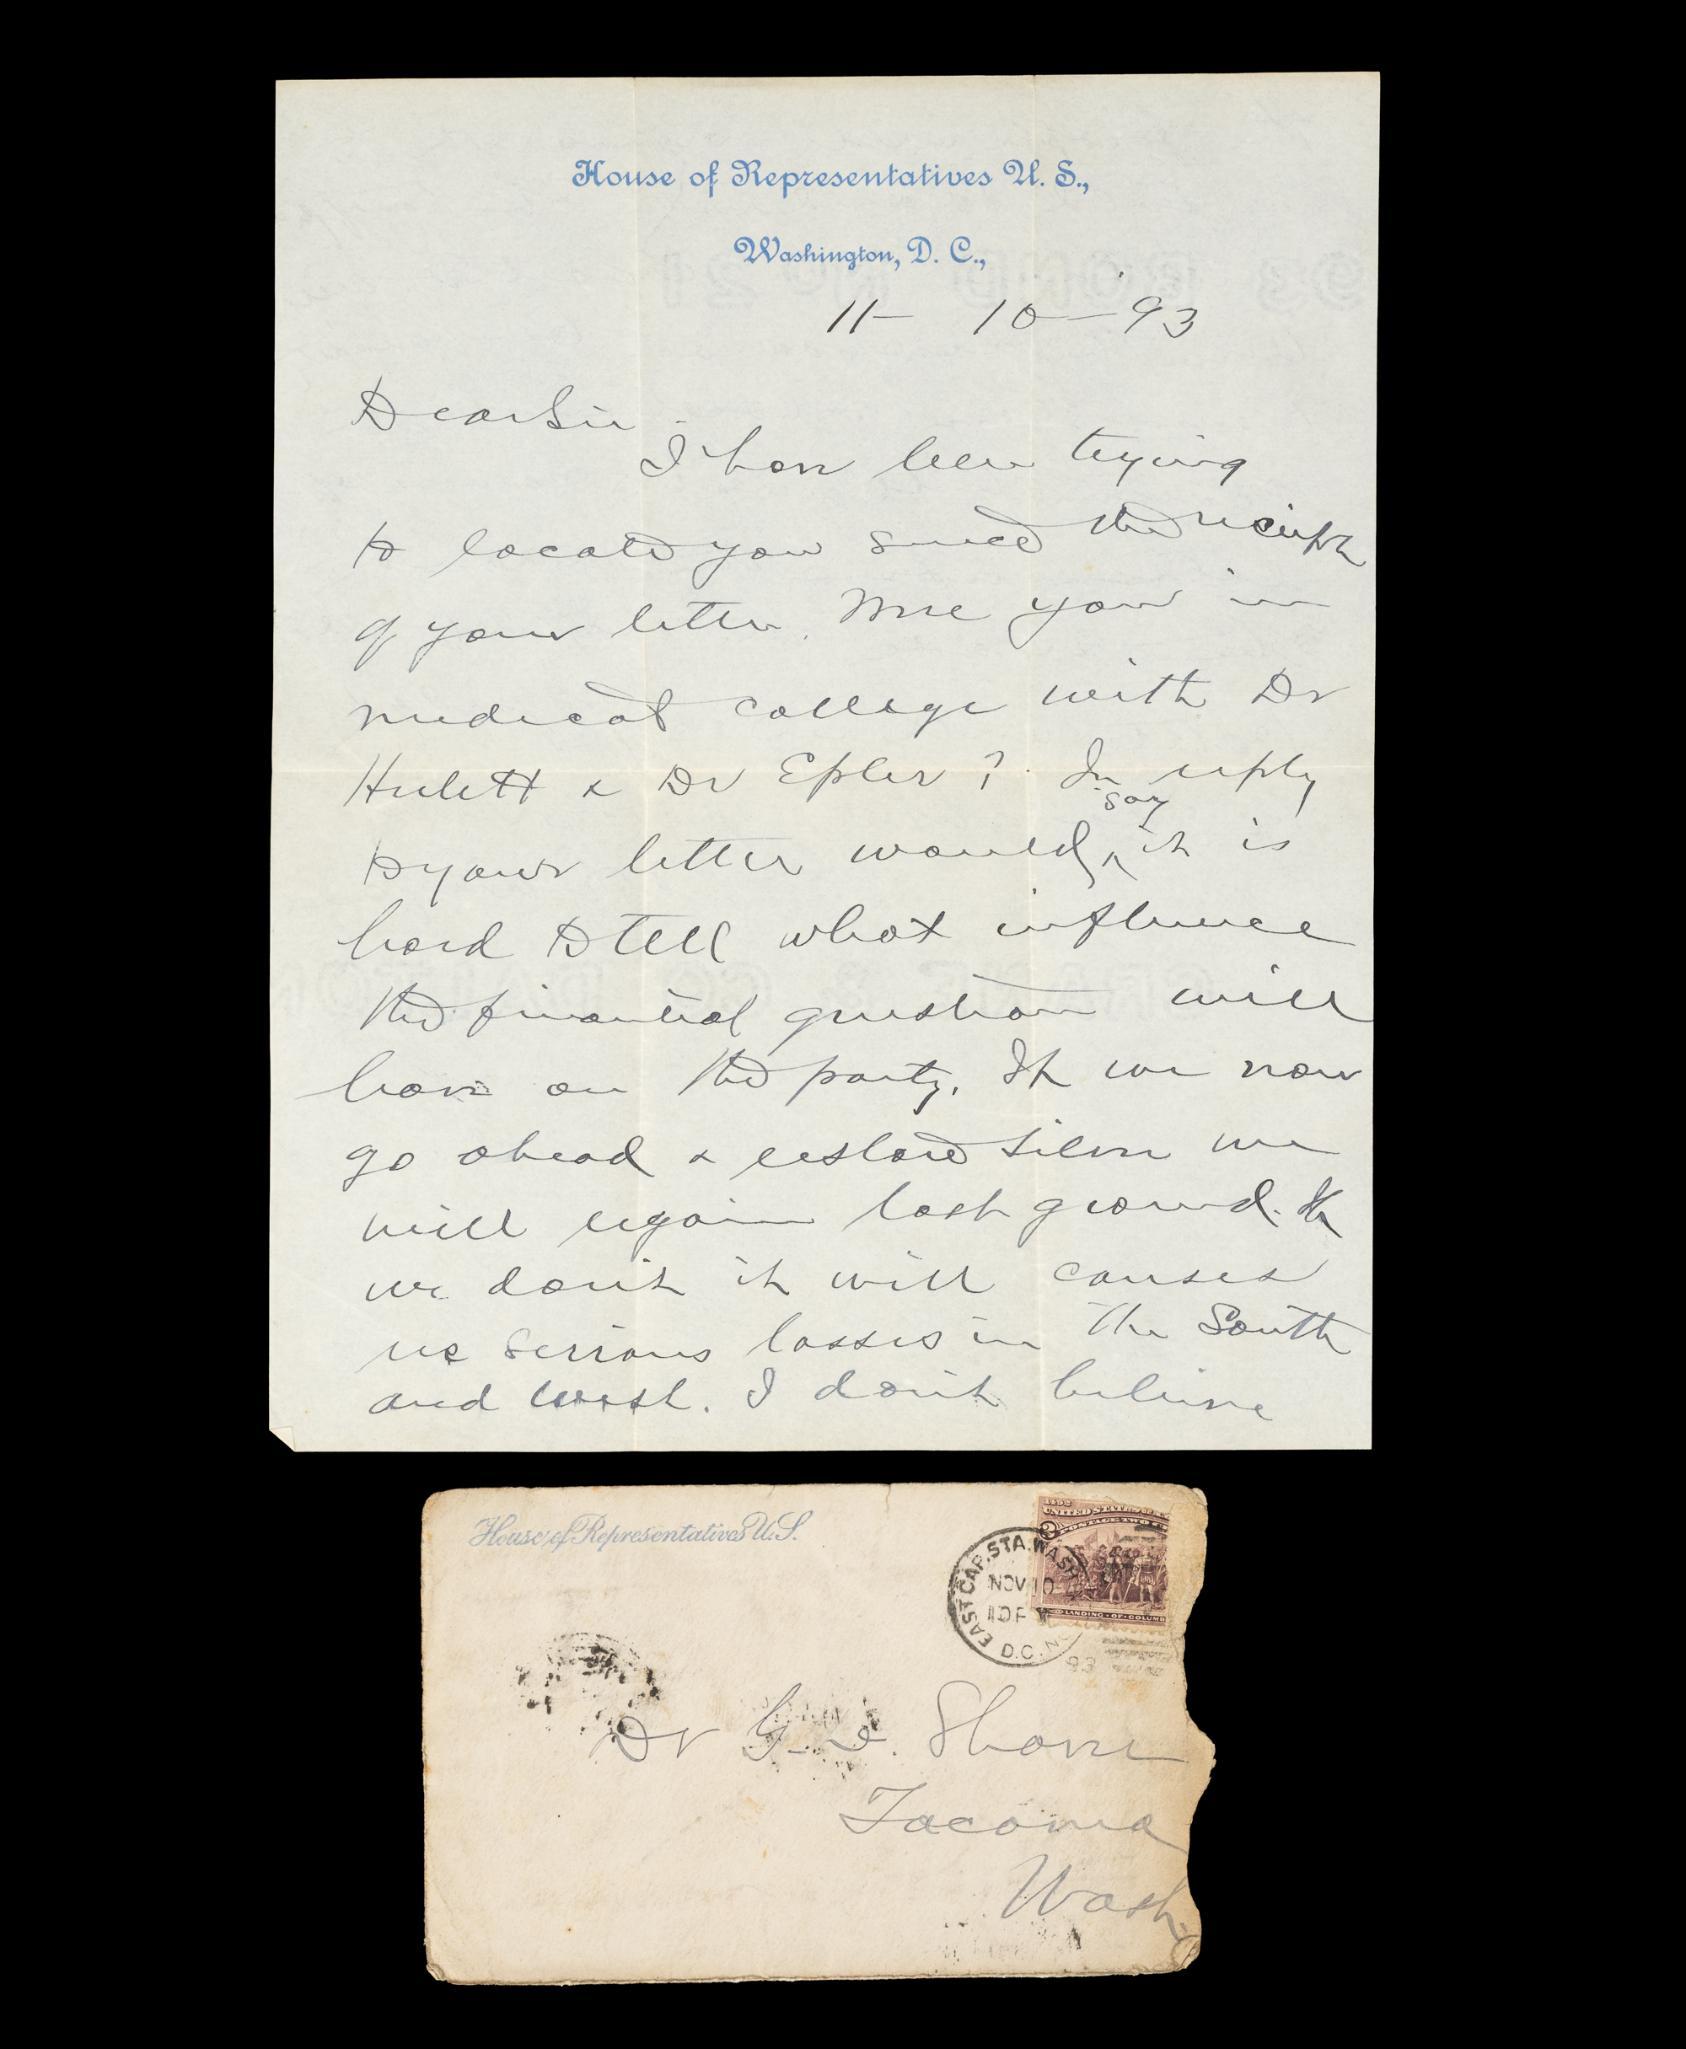 House of Representatives U. S.,
Washington, D. C.,
11 - 10 - 93
Dear Sir
I have been trying
to locate you since the receipt
of your letter. Were you in
medical college with Dr
Hulett & Dr Epler? In reply
say
to your letter would ^ it is
hard to tell what influence
the financial question will
have on the party. If we now
go ahead & restore silver we
will regain lost ground. If
we don't it will causes
us serious losses in the South
and West. I don't believe
House of Representatives U.S.
1492
UNITED STATES
POSTAGE TWO
2
LANDING OF COLUMB
EAST CAP. STA. WASH
NOV 10
10 P
D.C.
93
Dr G. Shaver
Tacoma
Wash.